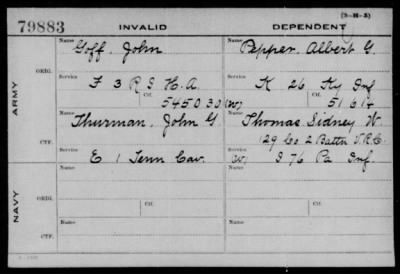 (3-M-3)
79883 INVALID DEPENDENT
ARMY
ORIG.
Name Goff, John
Service F 3 R I H.A.
Ctf. 545030 (W)
Name Pepper, Albert G.
Service K 26 Ky Inf
Ctf. 51614
CTF.
Name Thurman, John G.
Service E 1 Tenn Cav.
Name Thomas, Sidney W.
129 Co 2 Battn V.R.C.
(W) I 76 Pa Inf.
NAVY
ORIG.
Name
Service
Ctf.
Name
Service
Ctf.
CTF.
Name
Name